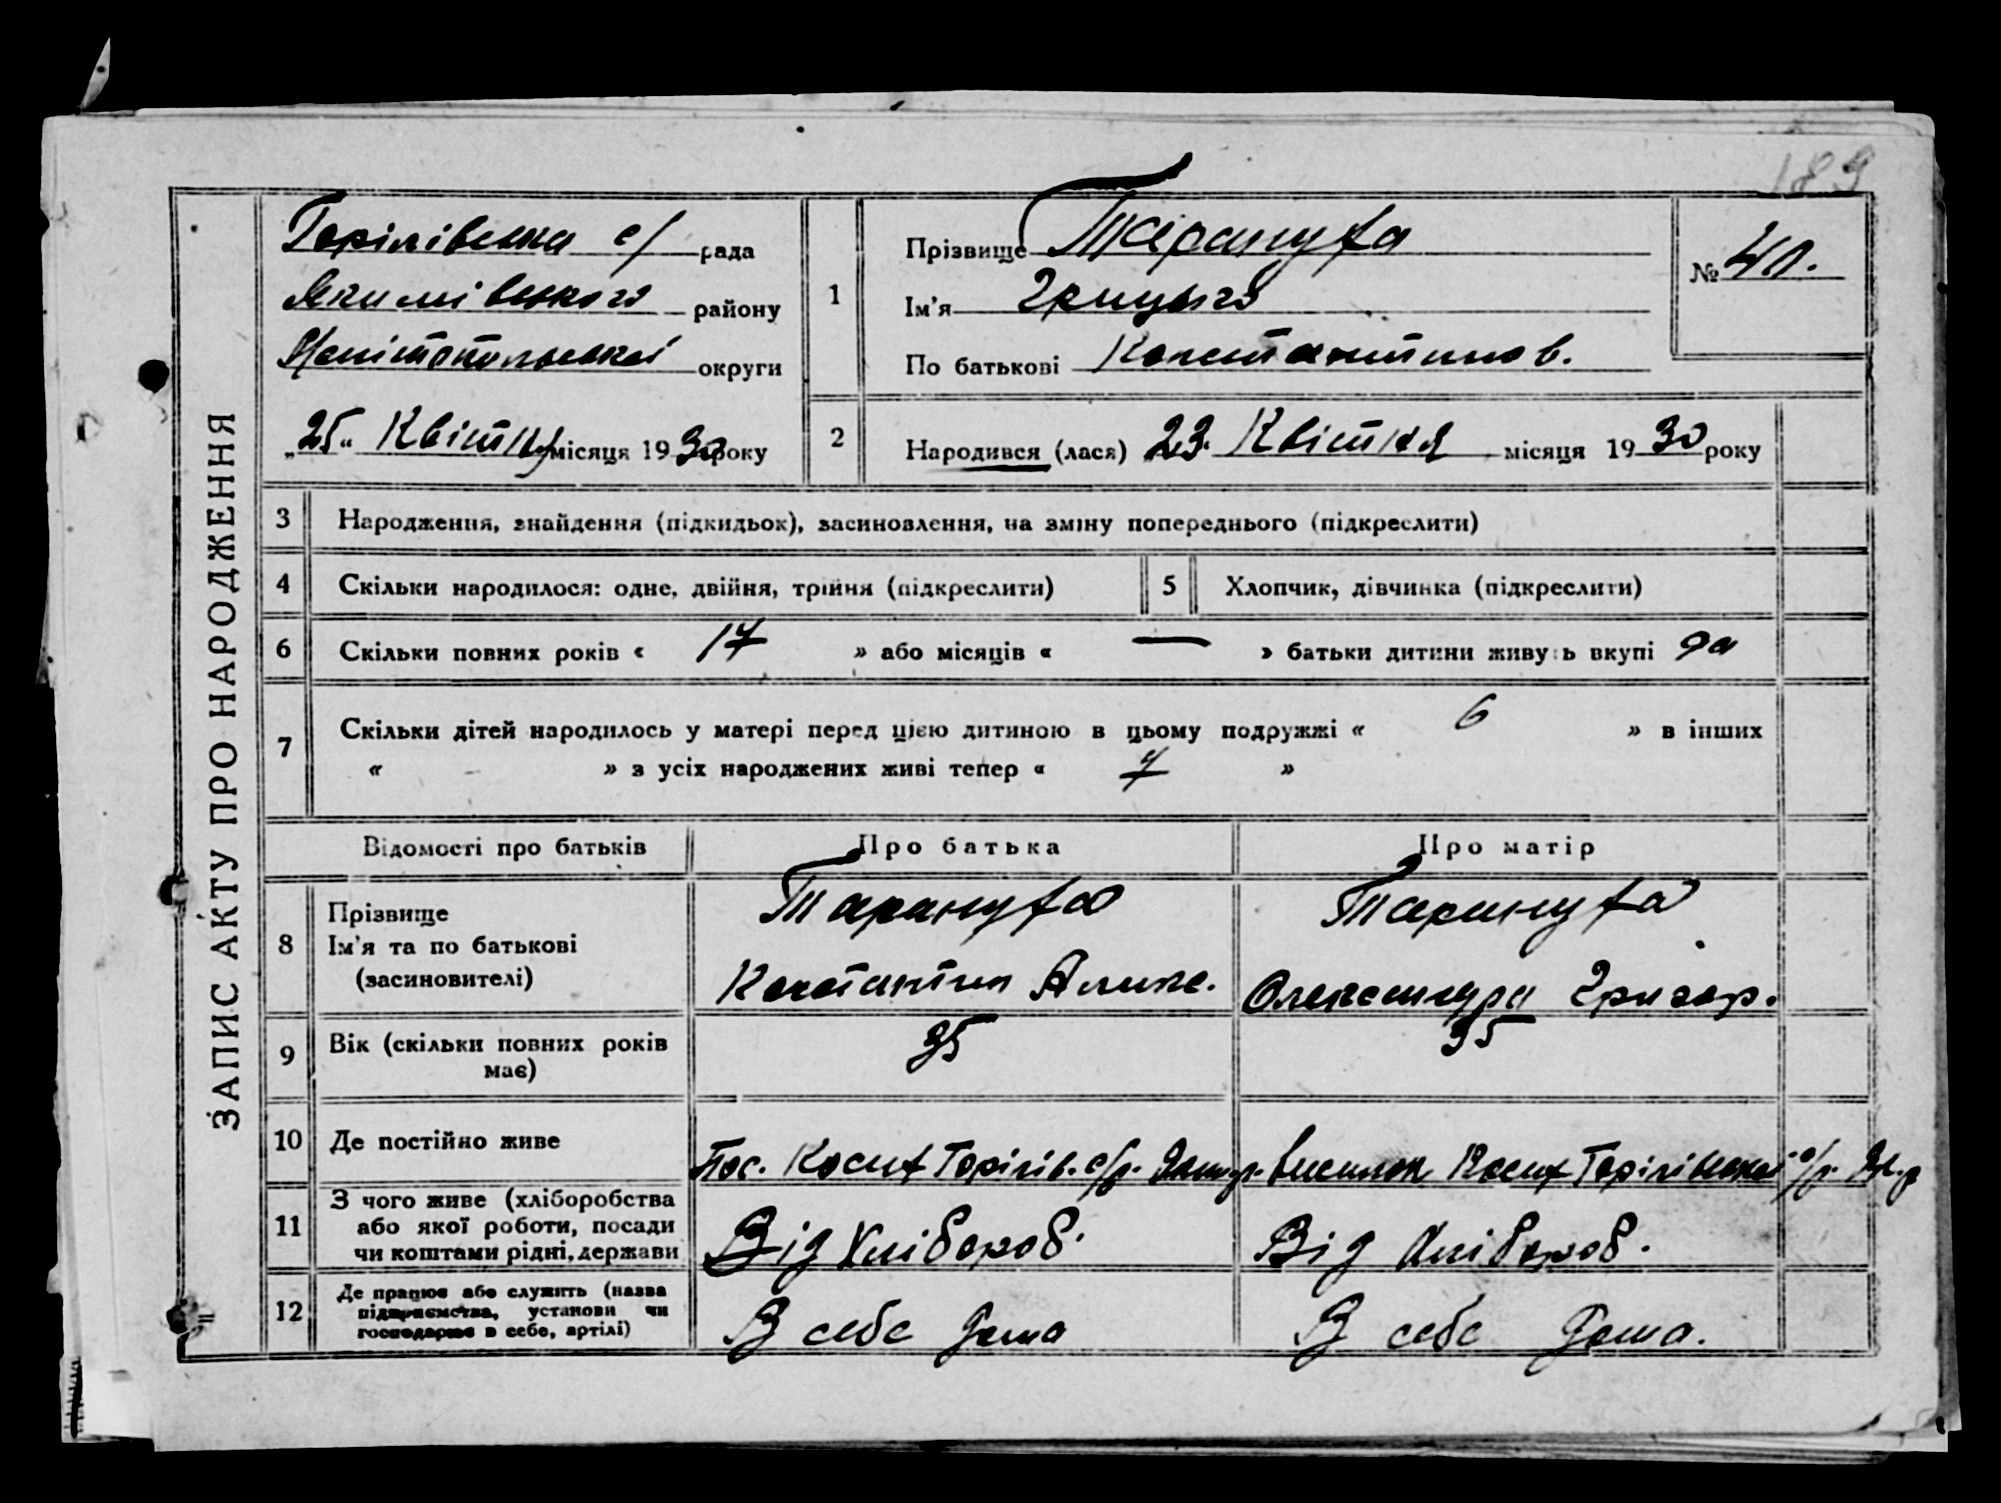 189
ЗАПИС АКТУ ПРО НАРОДЖЕННЯ
Горілівська с/ рада
Якимівського району
Мелітопольської округи
„25" Квітня місяця 1930 року
1
Прізвище Терануха
Ім'я Грицько
По батькові Константинов.
№ 41.
2 Народився (лася) 23. Квітня місяця 1930 року
3 Народження, знайдення (підкидьок), засиновлення, на зміну попереднього (підкреслити)
4 Скільки народилося: одне, двійня, трійня (підкреслити) 5 Хлопчик, дівчинка (підкреслити)
6 Скільки повних років « 17 » або місяців « — » батьки дитини живуть вкупі да
7 Скільки дітей народилось у матері перед цією дитиною в цьому подружжі « 6 » в інших
« » з усіх народжених живі тепер « 7 »
Відомості про батьків Про батька Про матір
8 Прізвище
Ім'я та по батькові
(засиновителі)
Терануха
Константин
Терануха
Олександра Григор.
9 Вік (скільки повних років
має)
35 35
10 Де постійно живе
Пос. Косих Горілів. с/р. виселок Косих Горілівської с/р.
11 З чого живе (хліборобства
або якої роботи, посади
чи коштами рідні, держави
Від Хлібороб. Від Хлібороб.
12 Де працює або служить (назва
підприємства, установи чи
господарює в себе, артілі)
В себе дома В себе дома.